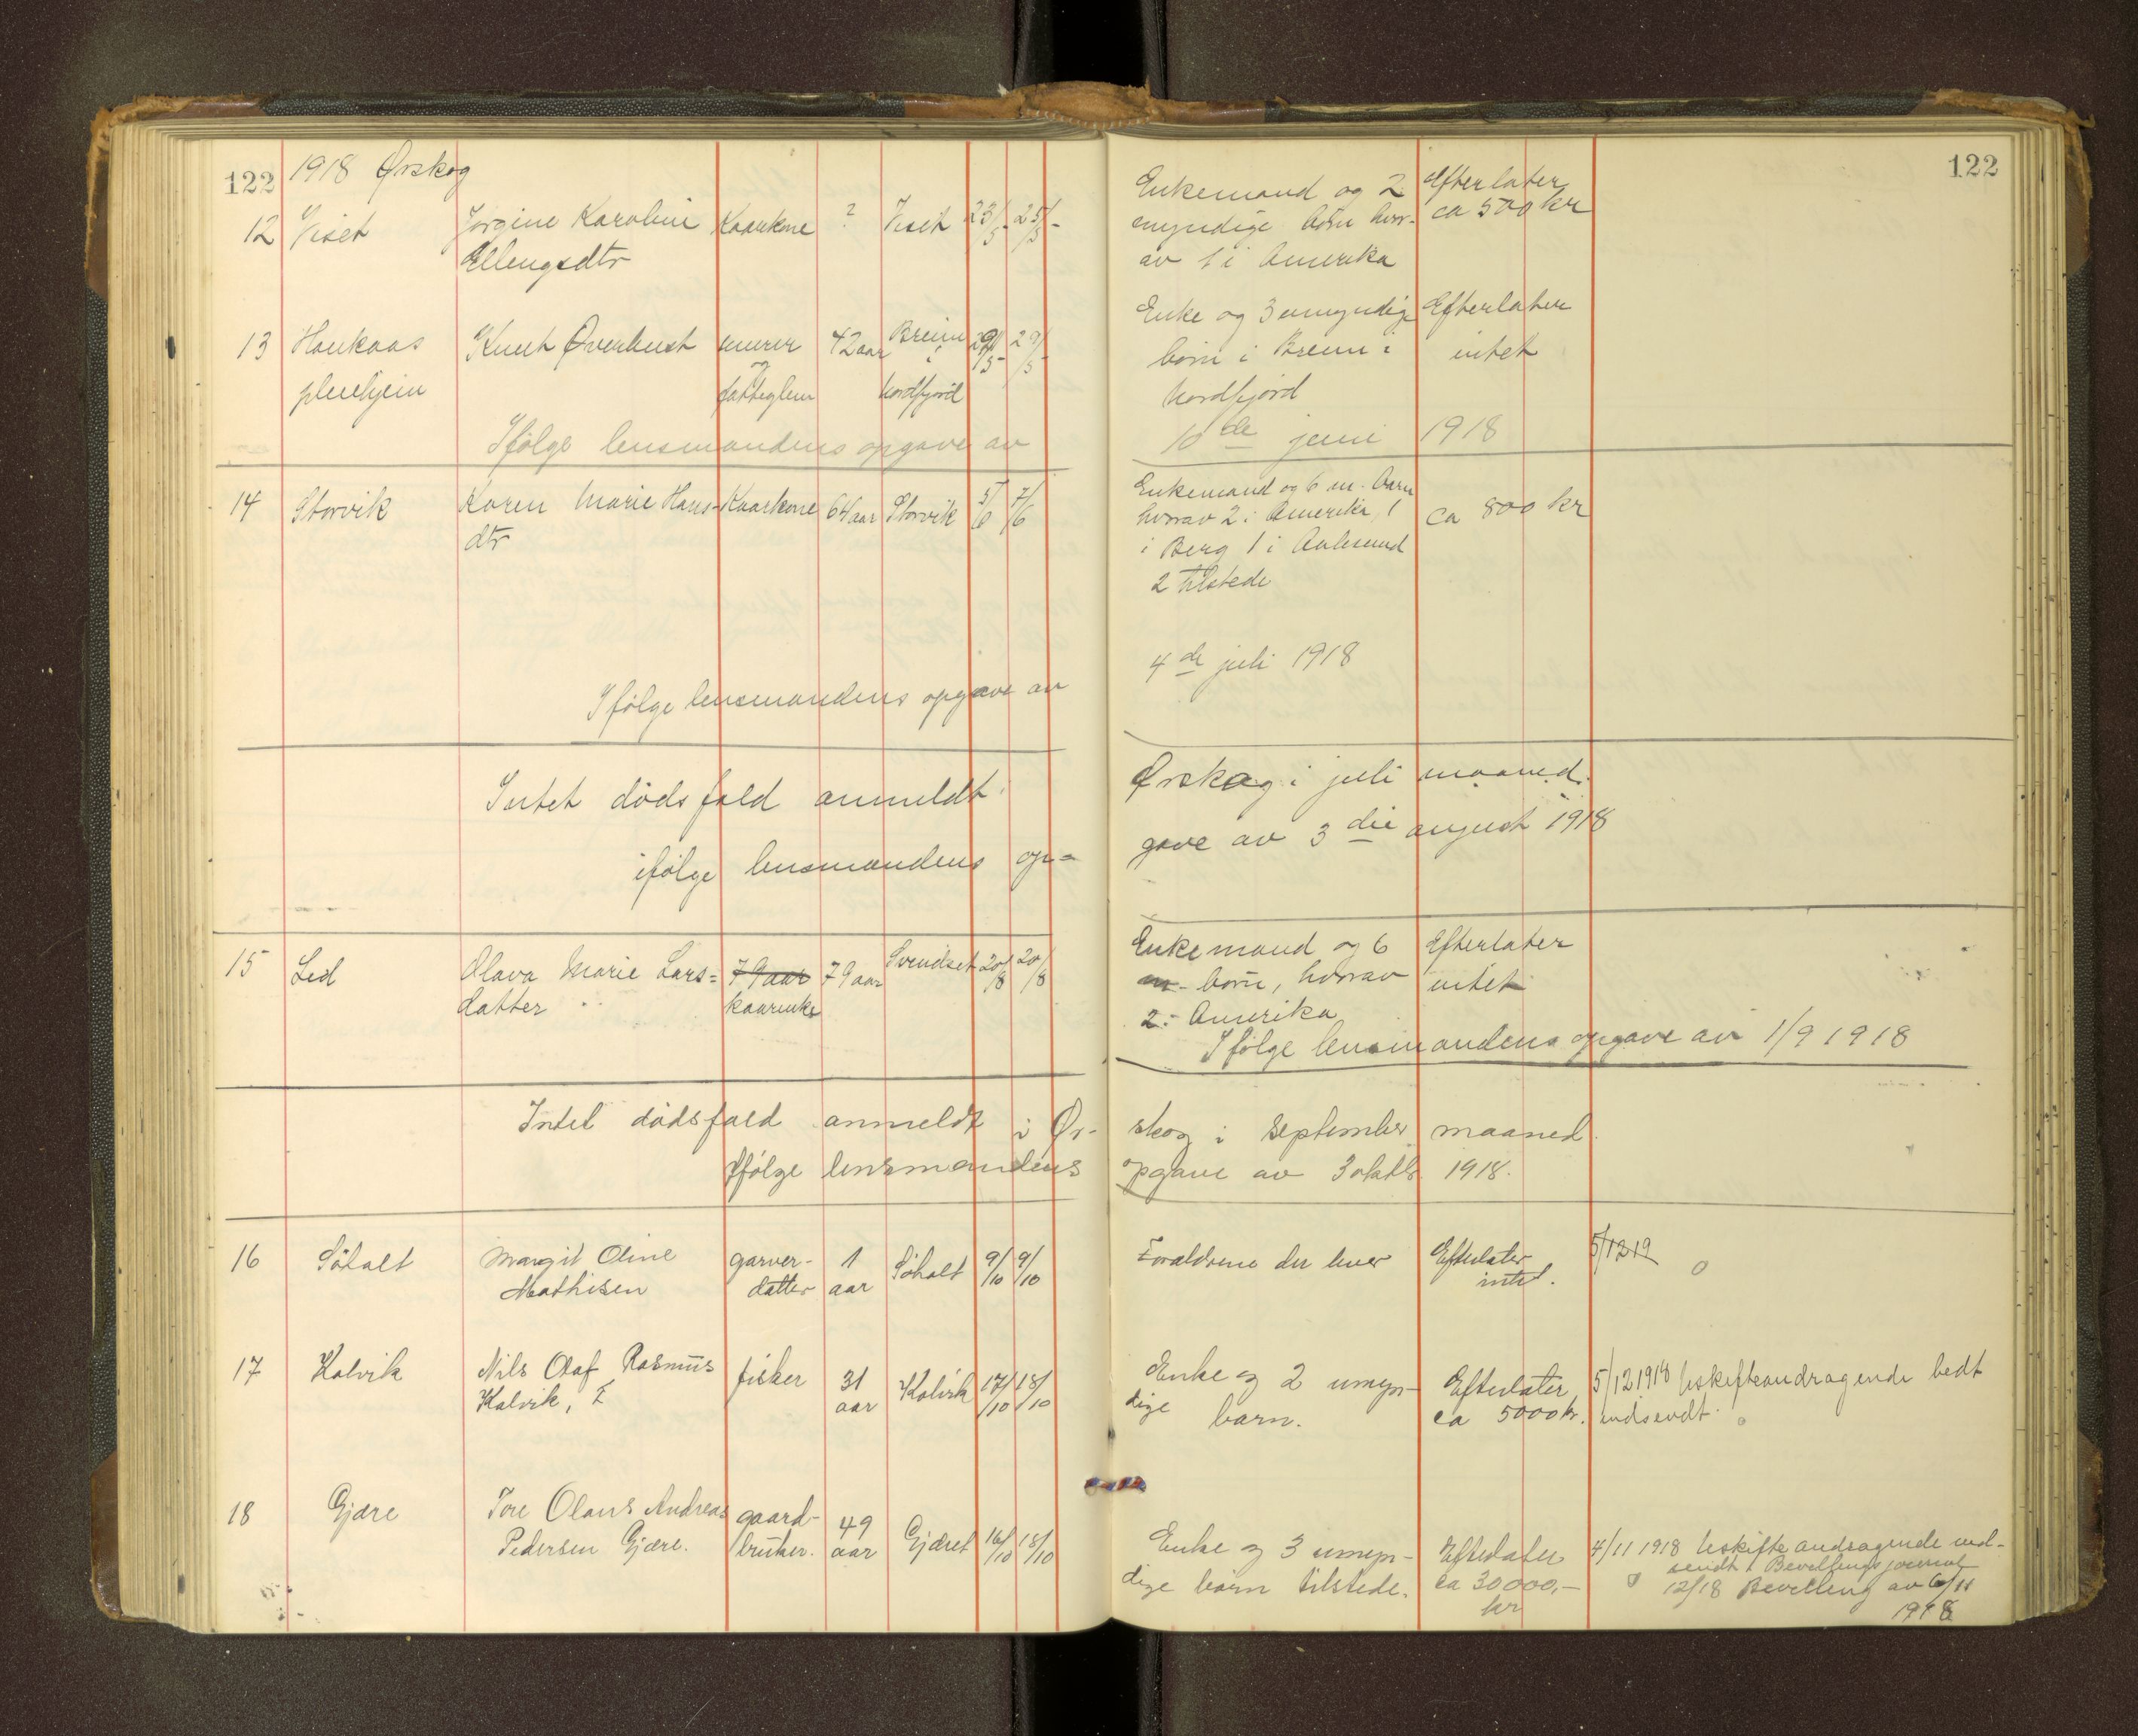 122 1918 Ørskog
12 Viset Jørgine Karoline Kaarkone ? Viset 23/5- 25/5-
Ellengsdtr
Enkemand og 2 Efterlater
myndige børn hvor- ca 500 kr
av 1 i Amerika
122
13 Haukaas Knut Øverhust murer 42 aar Breim 29/5- 29/5-
pleiehjem og i
fatteglem Nordfjord
Enke og 3 umyndige Efterlater
børn i Breim i intet
Nordfjord
Ifølge lensmandens opgave av 10de juni 1918
14 Storvik Karen Marie Hans- Kaarkone 64 aar Storvik 5/6 7/6
dtr
Enkemand og 6 m. barn
hvorav 2 i Amerika, 1 ca 800 kr
i Berg 1 i Aalesund
2 tilstede
Ifølge lensmandens opgave av 4de juli 1918
Intet dødsfald anmeldt i Ørskog i juli maaned.
ifølge lensmandens op= gave av 3die august 1918
15 Lid Olava Marie Lars= 79 aar 79 aar Svendset 20/8 20/8
datter kaarenke
Enkemand og 6 Efterlater
m- børn, hvorav intet
2 i Amerika
Ifølge lensmandens opgave av 1/9 1918
Intet dødsfald anmeldt i Ør- skog i september maaned.
Ifølge lensmandens opgave av 3 oktbr. 1918.
16 Søholt Margit Oline garver- 1 Søholt 9/10 9/10
Mathisen datter aar
Forældrene der lever Efterlater 5/12 19
intet. 0
17 Kalvik Nils Olaf Rasmus fisker 31 Kalvik 17/10 18/10
Kalvik, aar
Enke og 2 umyn- Efterlater 5/12 1918 Uskifteandragende bedt
dige barn. ca 5000 kr. indsendt. 0
18 Gjære Tore Olaus Andreas gaard- 49 Gjæret 16/10 18/10
Pedersen Gjære. bruker. aar
Enke og 3 umyn- Efterlater 4/11 1918 Uskifteandragende ind-
sendt. Bevillingsjournal
dige børn tilstede. ca 30000,- 0 12/18 Bevilling av 6/11
kr 1918